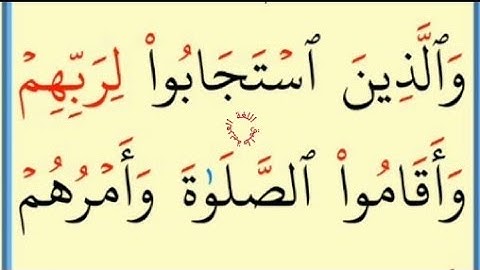 وَٱلَّذِينَ ٱسْتَجَابُوا۟ لِرَبِّهِمْ
وَأَقَامُوا۟ ٱلصَّلَوٰةَ وَأَمْرُهُمْ